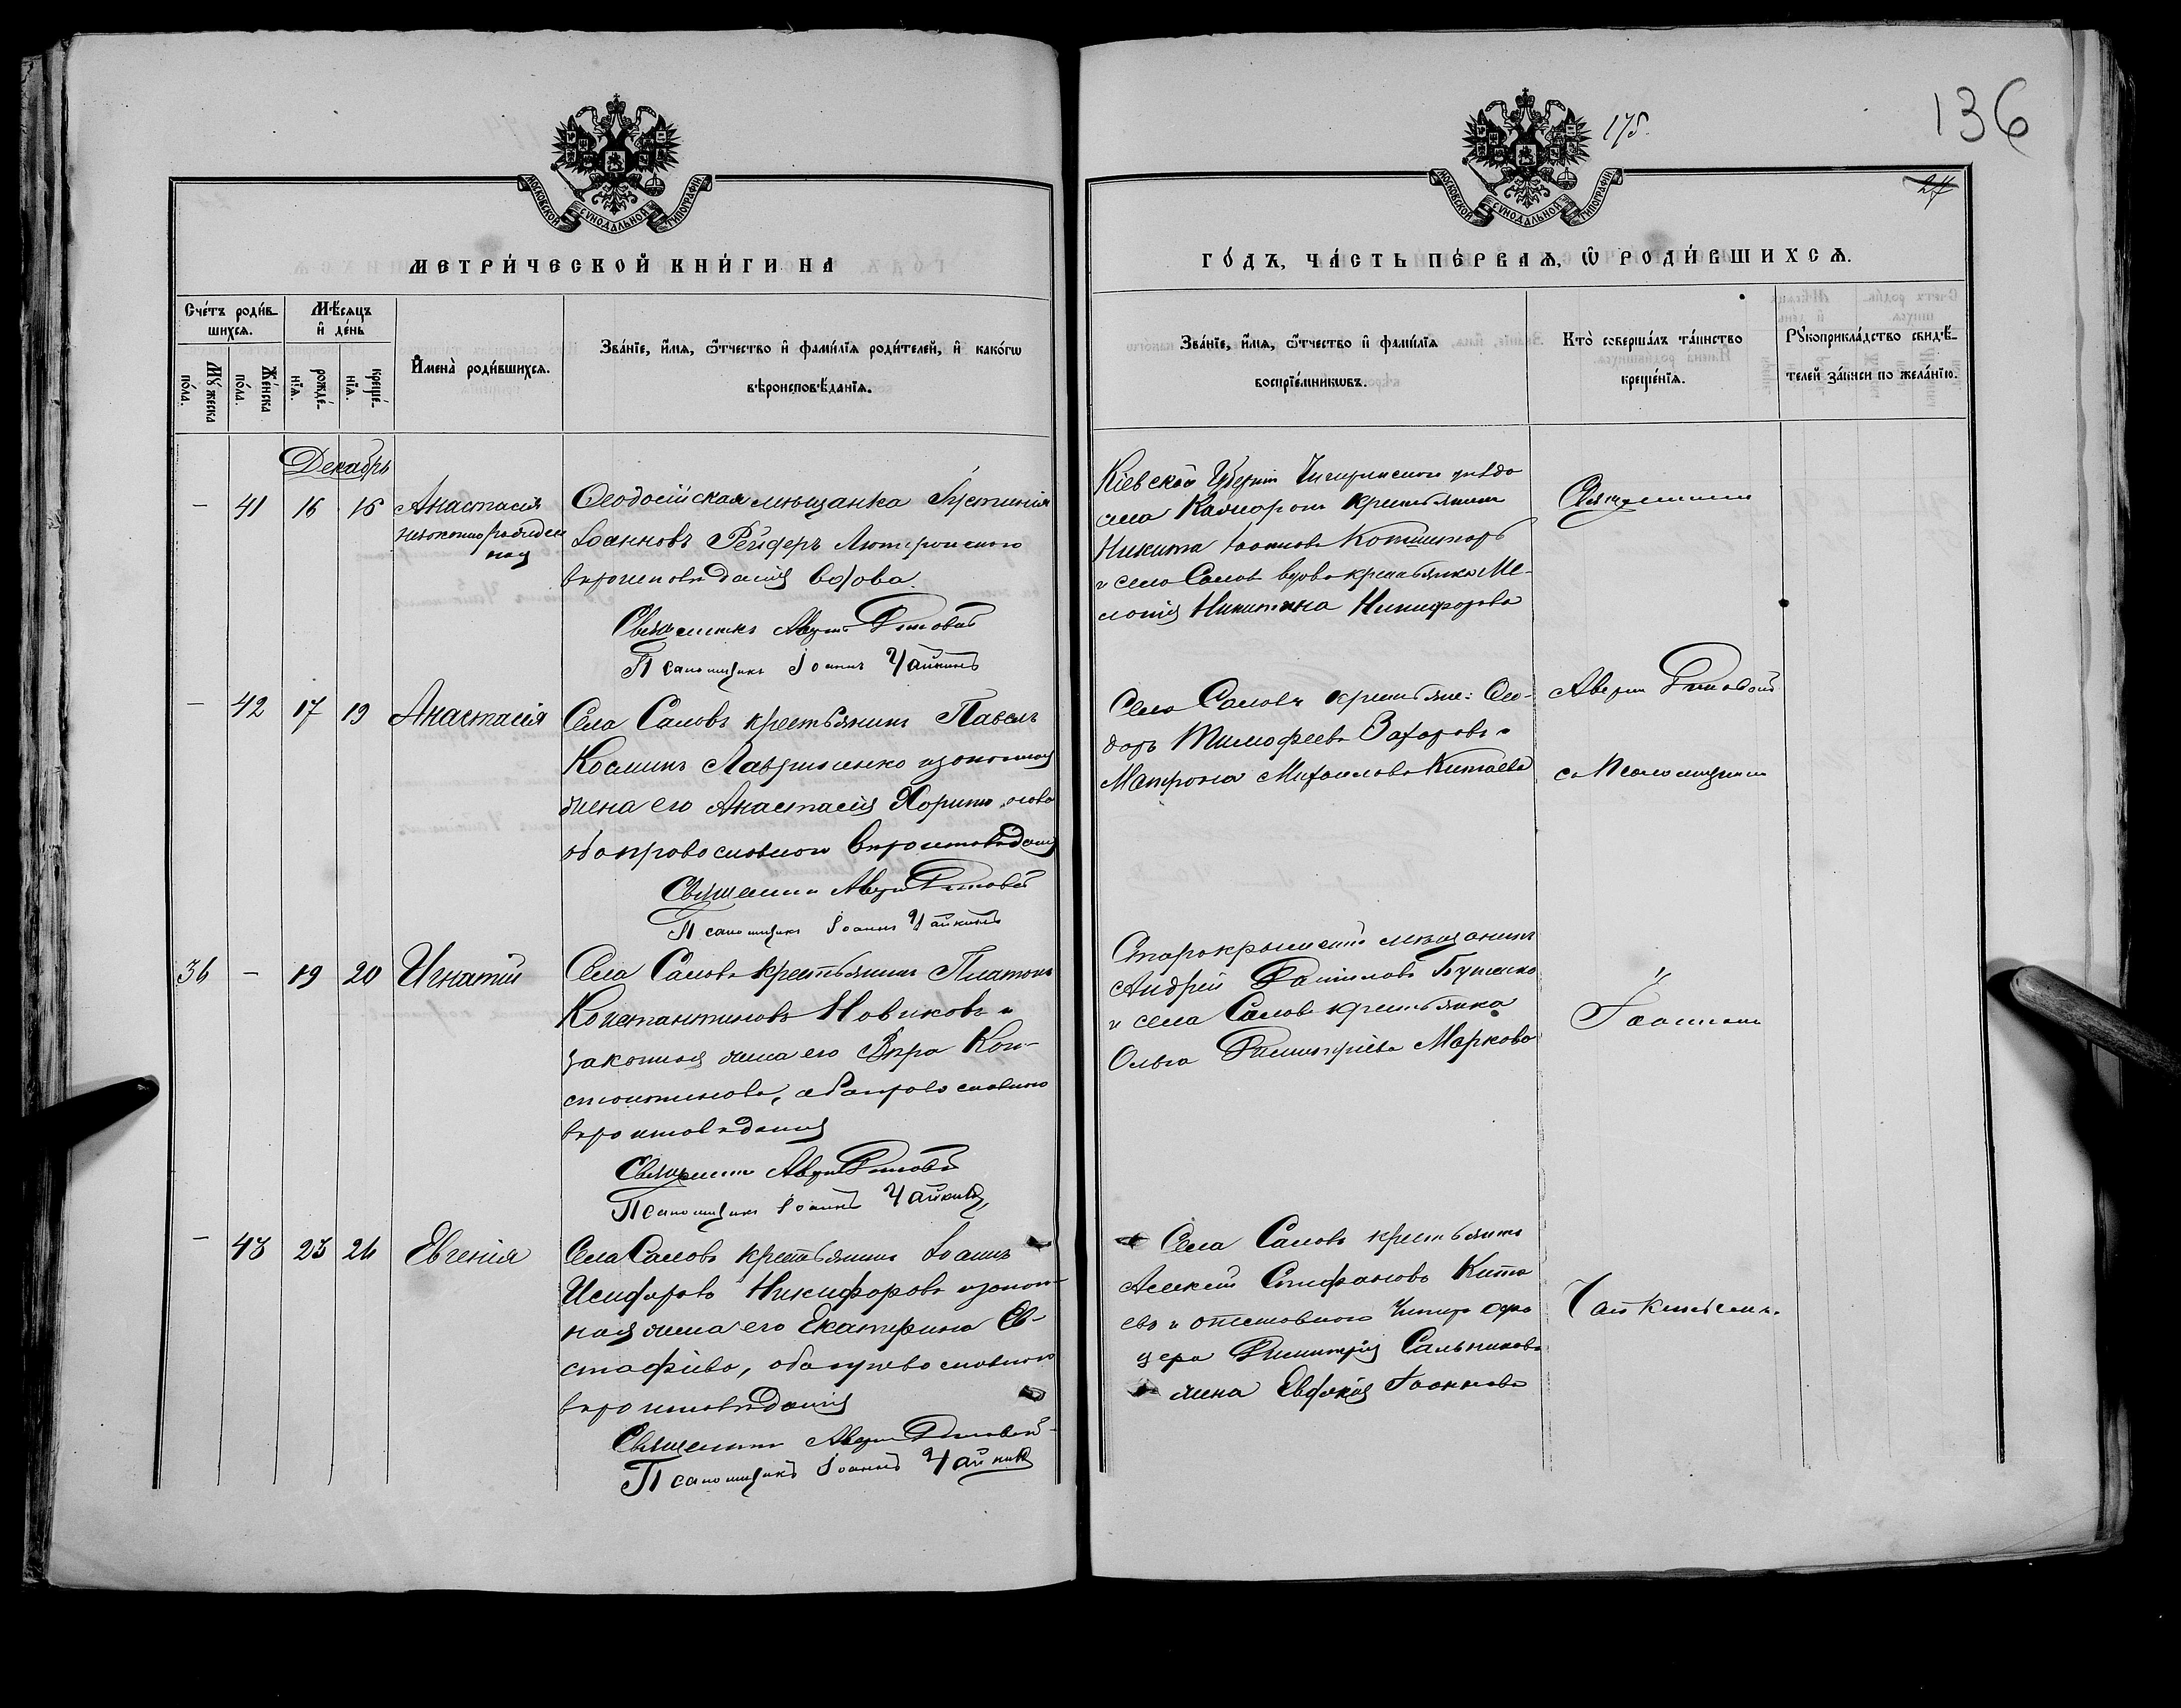 136
175.
24
МОСКОВСКОЙ СѴНОДАЛЬНОЙ ТИПОГРАФІИ
МЕТРИ́ЧЕСКОЙ КНИ́ГИ НА
Сче́тъ роди́в-
шихся.
Мѣ́сяцъ
и де́нь
Мꙋ́жеска
по́ла.
Же́нска
по́ла.
рожде́-
нїѧ.
креще́-
нїѧ.
И҆мена̀ роди́вшихсѧ.
Зва́нїе, и҆́мѧ, ѻ҆́тчество и҆ фами́лїѧ роди́телей, и҆ како́гѡ
вѣроисповѣ́данїѧ.
Декабрь
— 41 16 16 Анастасія
незаконно рожден
ная
Ѳеодосійская мѣщанка Іустинія
Іоаннова Рейдеръ Лютеранскаго
вероисповѣданія вдова.
Священникъ Аверкій
Псаломщикъ Іоаннъ Чайкинъ
— 42 17 19 Анастасія
Села Саловъ крестьянинъ Павелъ
Косминъ Лавриненко и законная
жена его Анастасія Харитонова
оба православного вероисповѣданія
Священникъ Аверкій
Псаломщикъ Іоаннъ Чайкинъ
36 — 19 20 Игнатій
Села Саловъ крестьянинъ Платонъ
Константиновъ Новиковъ и
законная жена его Вѣра Кон-
стантинова, оба православного
вероисповѣданія
Священникъ Аверкій
Псаломщикъ Іоаннъ Чайкинъ
— 43 23 26 Евгенія
Села Саловъ крестьянинъ Іоаннъ
Никифоровъ и закон-
ная жена его Екатерина Ев-
стафіева, оба православного
вероисповѣданія
Священникъ Аверкій
Псаломщикъ Іоаннъ Чайкинъ
МОСКОВСКОЙ СѴНОДАЛЬНОЙ ТИПОГРАФІИ
ГО́ДЪ, ЧА́СТЬ ПЕ́РВАѦ, Ѡ҆ РОДИ́ВШИХСѦ.
Зва́нїе, и҆́мѧ, ѻ҆́тчество и҆ фами́лїѧ
воспрїе́мникѡвъ.
Кто̀ соверша́лъ та́инство
креще́нїѧ.
Рꙋкоприкла́дство свидѣ́-
телей за́писи по жела́нїю.
Кіевской Губерніи Чигиринского уѣзда
села крестьянинъ
Никита Іоанновъ
и села Салов вдова крестьянка Ме-
ланія Никитина Никифорова
Священникъ
Села Саловъ крестьяне: Ѳео-
доръ Тимофеевъ Захаровъ и
Матрона Михаилова Китаева
Аверкій
съ Псаломщикомъ
Старокрымскій мѣщанинъ
Андрей Даниловъ
и села Саловъ крестьянка
Ольга Димитріева Маркова
Іоанномъ
Села Саловъ крестьянинъ
Алексій Стефановъ Кита
евъ и отставного Унтеръ офи
цера Димитрія Сальникова
жена Евдокія Іоаннова
Чайкинымъ.